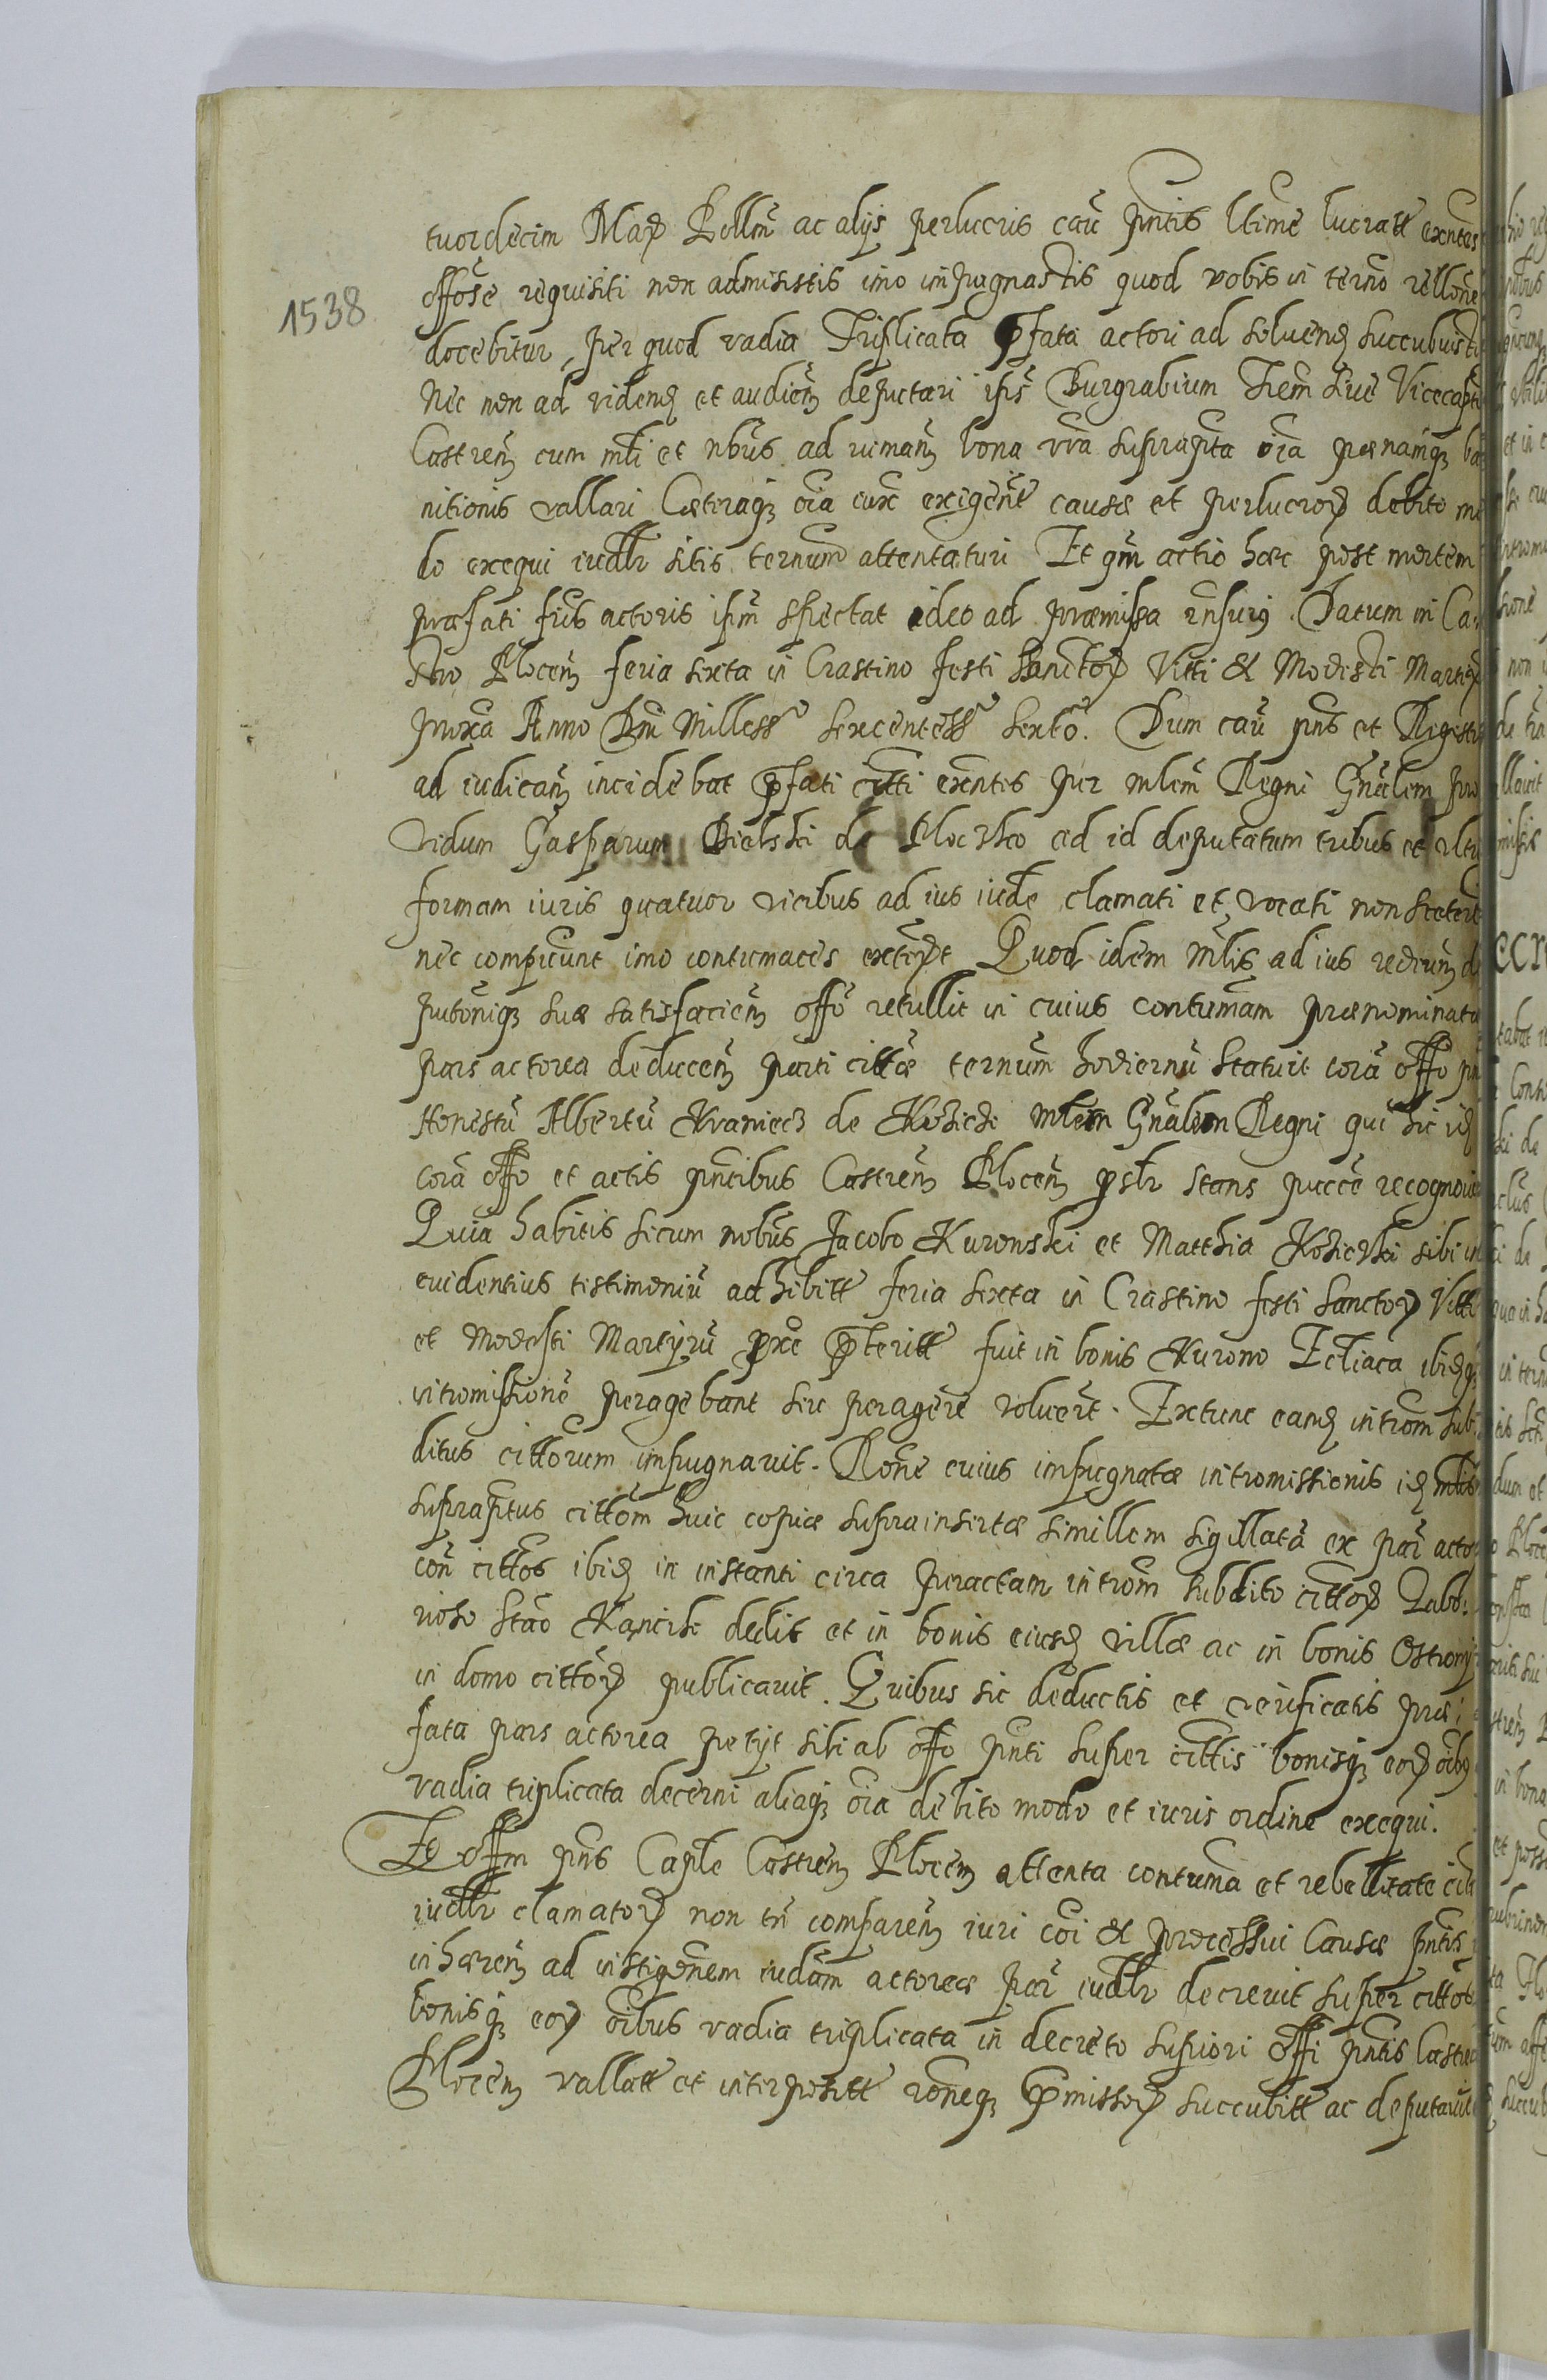 tuordecim Marc Pollm̃ ac alijs perlucris caũ pñtis ltime lucratt exñtes
offose requisiti non admisistis imo impugnastis quod vobis in term̃o rellone
1538
docebitur, per quod vadia Triplicata p̃fata actori ad soluend succubuisti
Nec non ad videnđ et audiem̃ deputari ips̃ Burgrabium Trem̃ siue Vicecapt
Castrem̃ cum mli et nbus ad rumam̃ bona vr̃a suprap̃ta oĩa pœnamq ba
nitionis vallari Cæteraq oĩa iux̃ exigent causæ et perlucror debito mo
do exequi iudlr sitis ternum̃ attentaturi Et qm̃ actio hæc post mortem
præfati fris actoris ipm̃ spectat ideo ad præmissa insurg. Datum in Ca
stro Plocem̃ feria sexta in Crastino festi Sanctor Vitti & Modesti Martir
proxa Anno Dni Milless° sexcentess° sexto. Dum caũ pñs et Regestr
ad iudicam̃ incidebat p̃fati citti exñtes per mlem̃ Regni Gñalem pro
vidum Gasparum Bielski de Plocsko ad id deputatum tribus et vltr
formam iuris quatuor vicibus ad ius iude clamati et vocati non steter
nec compuerunt imo contumaces exter̃t Quod idem Mlis ad ius redeum̃ de
putoniq suæ satisfaciem̃ offo retullit in cuius contumam prænominata
pars actorea deducem̃ parti cittæ ternum̃ hodiernũ statuit corã offo pñ
Honestũ Albertũ Kraniec de Kozicki mlem Gñalem Regni qui hic id
corã offo et actis pñtibus Castrem̃ Plocem̃ pslr stans pucce recognoui
Quia habitis secum nobus Jacobo Kurowski et Matthia Kozicki sibi in
euidentius testimoniũ adhibitt feria sexta in Crastino festi Sanctor Vitti
et Modesti Martyrũ pxe p̃teritt fuit in bonis Kurowo Ecliaca ibidq
intromissionẽ peragebant seu peragere voluer̃t. Extunc eand introm̃ sub
ditus cittorum impugnauit. Rone cuius impugnatæ intromissionis id mlis
suprap̃tus cittom̃ huic copiæ suprainsertæ simillem sigillatã ex par̃ actor
con̄ cittos ibid in instanti circa peractam introm̃ subdito cittor Labo:
rioso Stao Kancik dedit et in bonis eiusd villæ ac in bonis Ostrowy
in domo cittor publicauit. Quibus sic deductis et verificatis præ
fata pars actorea petijt sibi ab offo pñti super cittis bonisq eor oibq
vadia triplicata decerni aliaq oĩa debito modo et iuris ordine exequi.
Et offm pñs Caple Castrem̃ Plocem̃ attenta contuma et rebellitate citt
iudlr clamator non tñ comparem̃ iuri coĩ & processui Causæ pñtis
inhærem̃ ad instigonem iudam̃ actoreæ par̃ iudlr decreuit super cittos
bonisq eor oibus vadia triplicata in decreto supiori offi pñtis Castre
Plocem̃ vallatt et interpositt ronẽq p̃missor succubitt ac deputauit